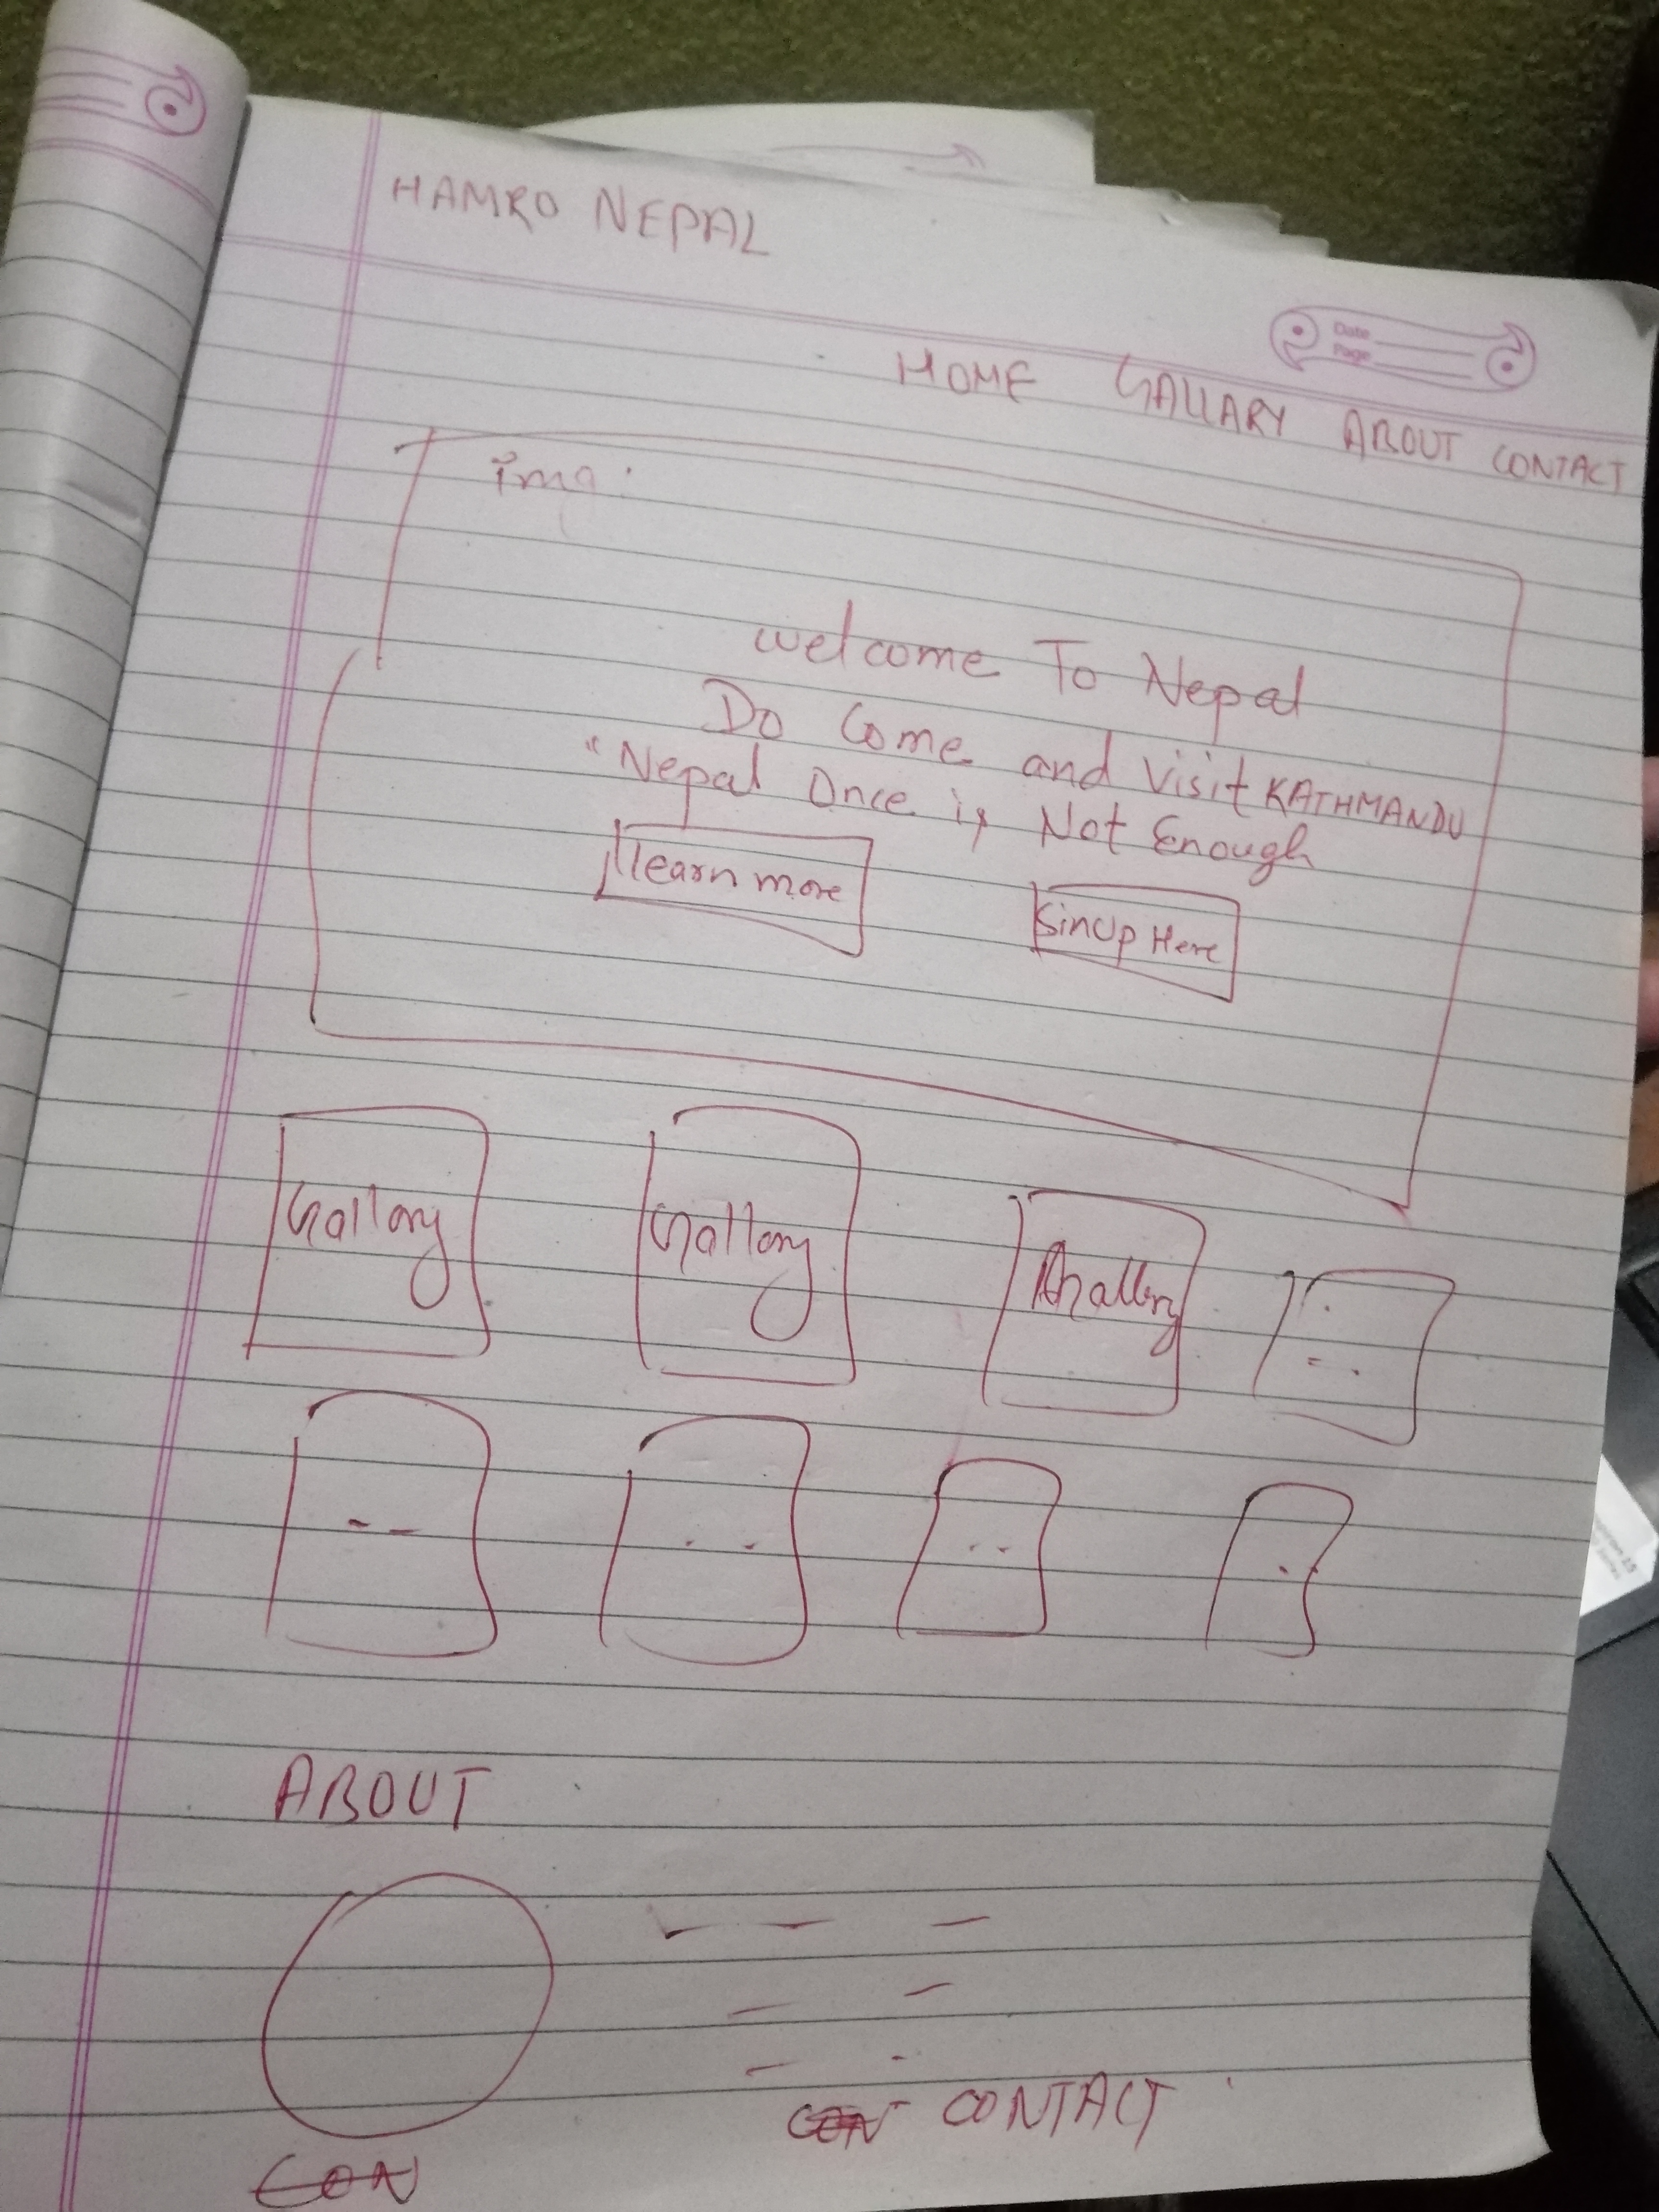 HAMRO NEPAL
Date
Page
HOME GALLARY ABOUT CONTACT
img:
welcome To Nepal
Do Come and Visit KATHMANDU
"Nepal Once is Not Enough
learn more
SinUp Here
Gallary
Gallary
ABOUT
CONTACT